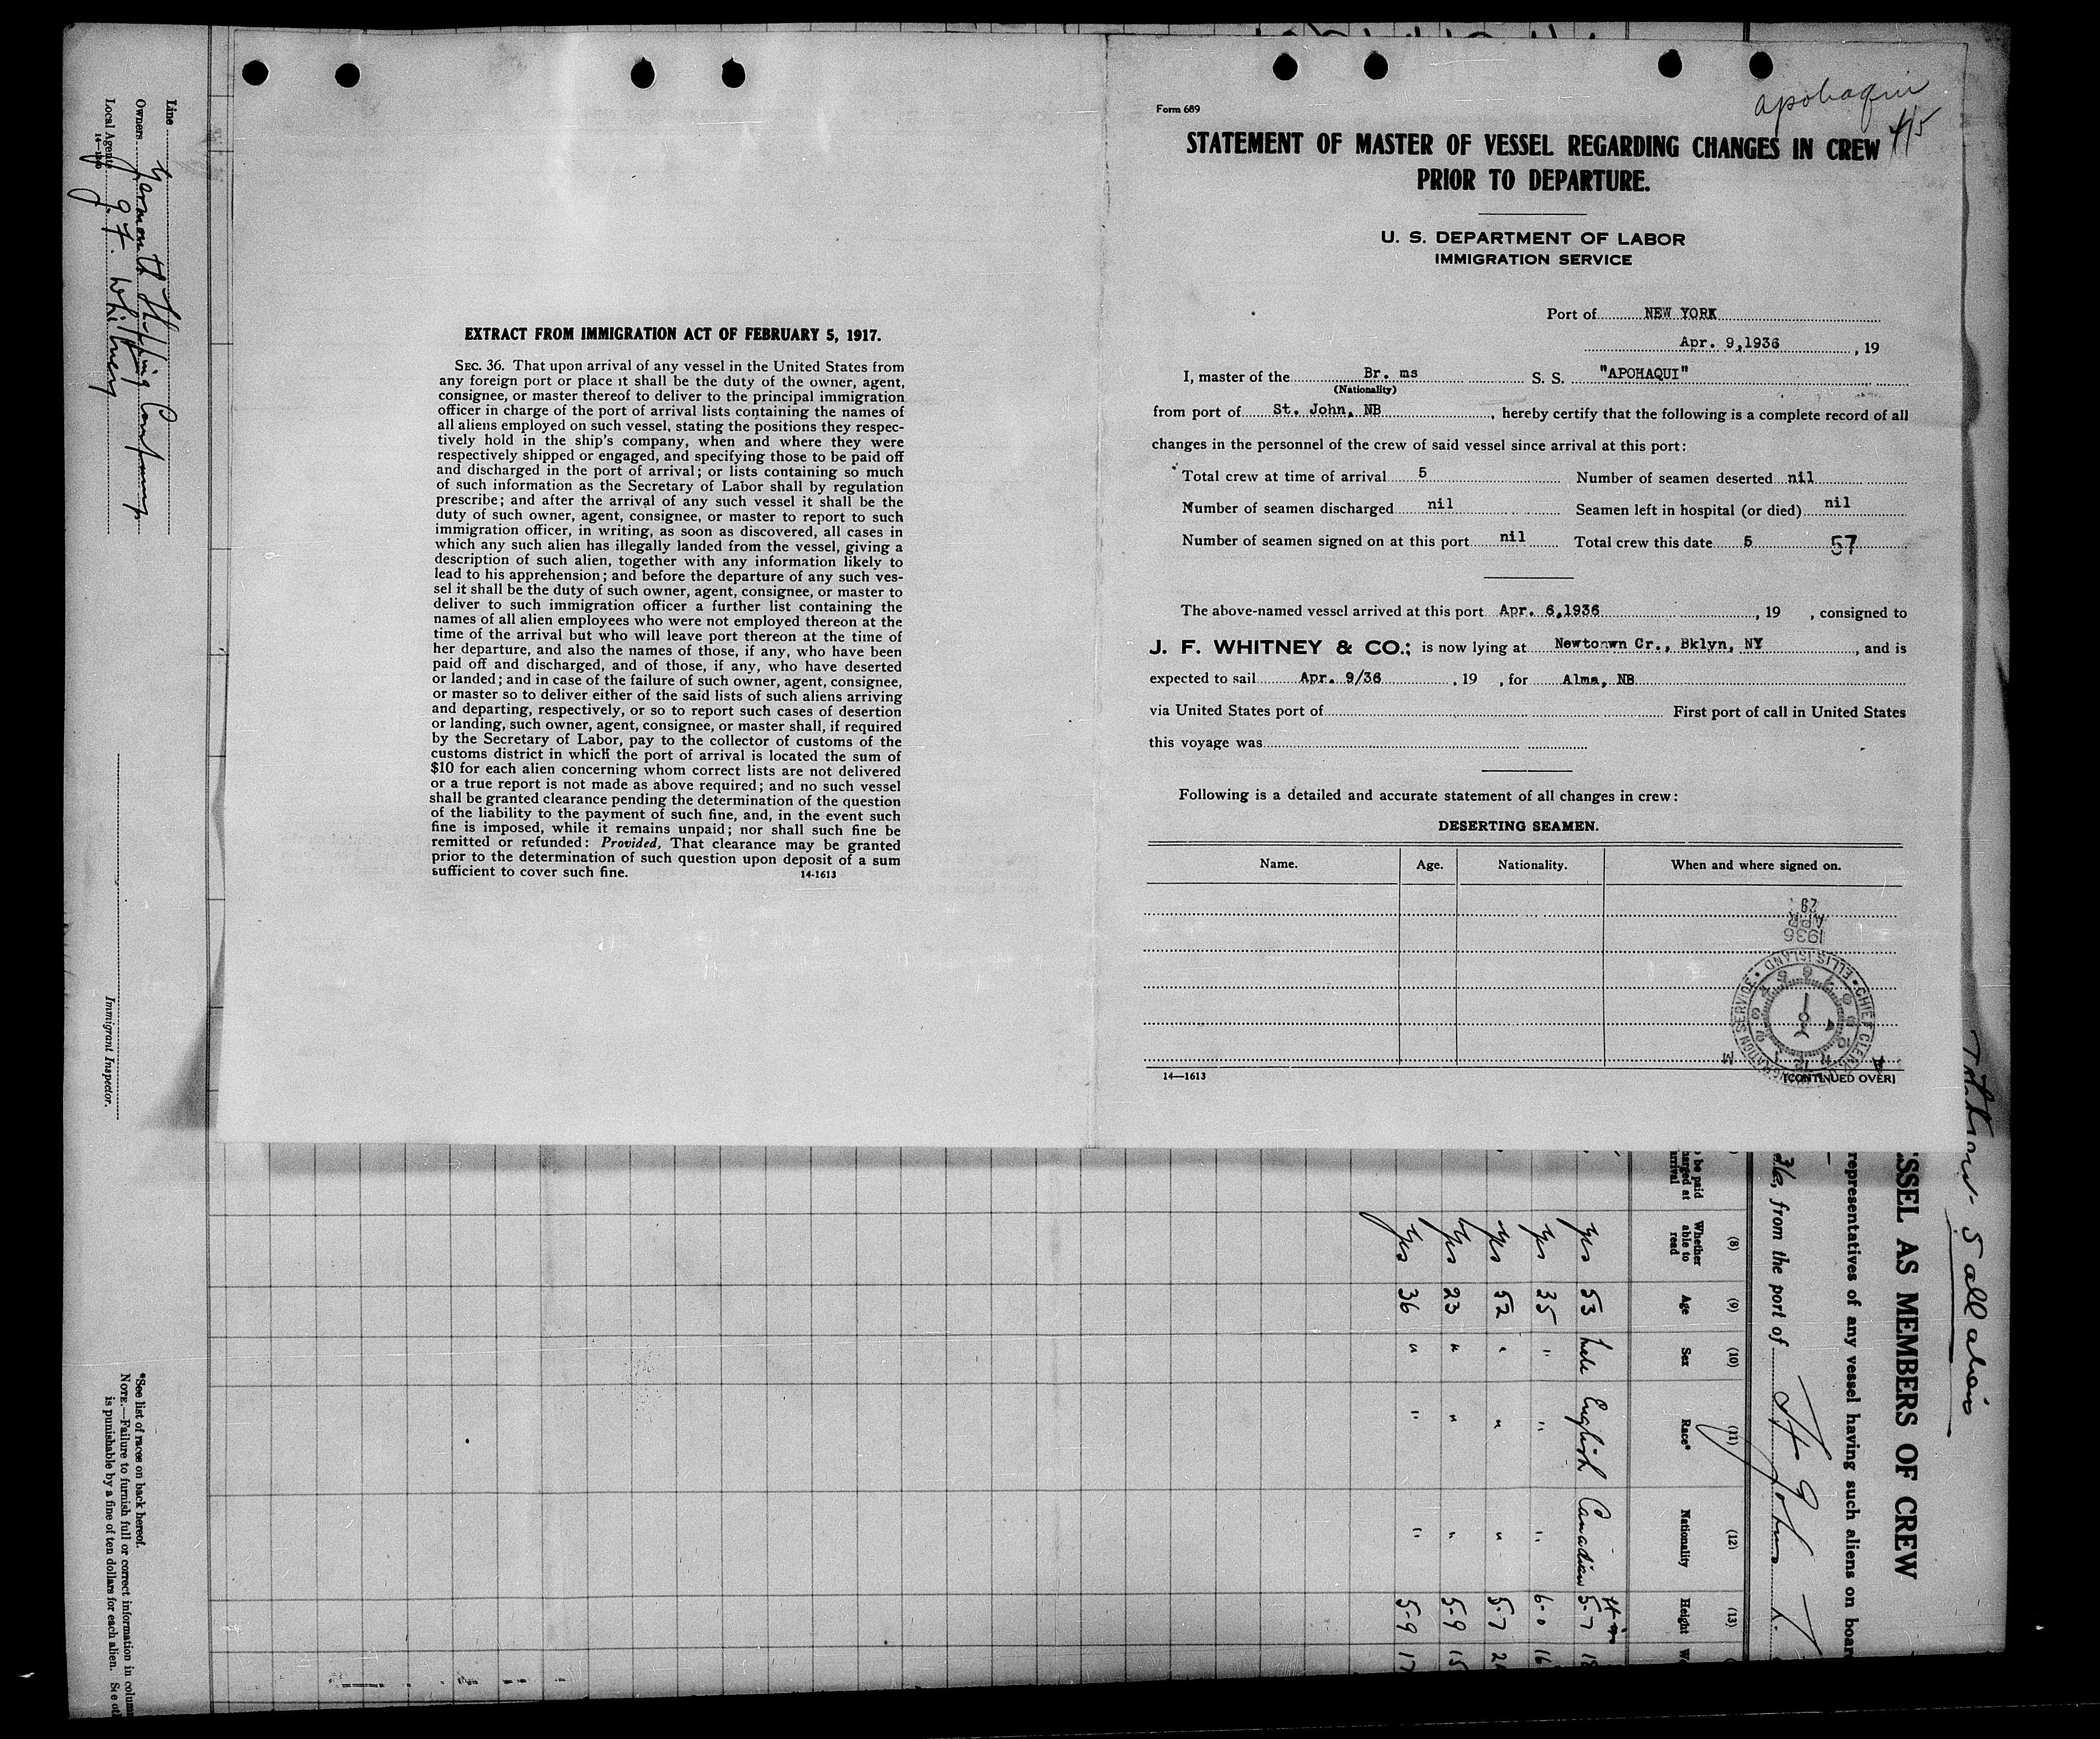 Line
Owners Yarmouth Shipping Company
Local Agents J. F. Whitney
14—1240
Immigrant Inspector.
*See list of races on back hereof.
NOTE.—Failure to furnish full or correct information in colum
is punishable by a fine of ten dollars for each alien. See ot
EXTRACT FROM IMMIGRATION ACT OF FEBRUARY 5, 1917.
SEC. 36. That upon arrival of any vessel in the United States from
any foreign port or place it shall be the duty of the owner, agent,
consignee, or master thereof to deliver to the principal immigration
officer in charge of the port of arrival lists containing the names of
all aliens employed on such vessel, stating the positions they respec-
tively hold in the ship's company, when and where they were
respectively shipped or engaged, and specifying those to be paid off
and discharged in the port of arrival; or lists containing so much
of such information as the Secretary of Labor shall by regulation
prescribe; and after the arrival of any such vessel it shall be the
duty of such owner, agent, consignee, or master to report to such
immigration officer, in writing, as soon as discovered, all cases in
which any such alien has illegally landed from the vessel, giving a
description of such alien, together with any information likely to
lead to his apprehension; and before the departure of any such ves-
sel it shall be the duty of such owner, agent, consignee, or master to
deliver to such immigration officer a further list containing the
names of all alien employees who were not employed thereon at the
time of the arrival but who will leave port thereon at the time of
her departure, and also the names of those, if any, who have been
paid off and discharged, and of those, if any, who have deserted
or landed; and in case of the failure of such owner, agent, consignee,
or master so to deliver either of the said lists of such aliens arriving
and departing, respectively, or so to report such cases of desertion
or landing, such owner, agent, consignee, or master shall, if required
by the Secretary of Labor, pay to the collector of customs of the
customs district in which the port of arrival is located the sum of
$10 for each alien concerning whom correct lists are not delivered
or a true report is not made as above required; and no such vessel
shall be granted clearance pending the determination of the question
of the liability to the payment of such fine, and, in the event such
fine is imposed, while it remains unpaid; nor shall such fine be
remitted or refunded: Provided, That clearance may be granted
prior to the determination of such question upon deposit of a sum
sufficient to cover such fine. 14-1613
apohaqui
4/5
Form 689
STATEMENT OF MASTER OF VESSEL REGARDING CHANGES IN CREW
PRIOR TO DEPARTURE.
U. S. DEPARTMENT OF LABOR
IMMIGRATION SERVICE
Port of NEW YORK
Apr. 9,1936 , 19
I, master of the Br. ms S. S. "APOHAQUI"
(Nationality)
from port of St. John, NB , hereby certify that the following is a complete record of all
changes in the personnel of the crew of said vessel since arrival at this port:
Total crew at time of arrival 5 Number of seamen deserted nil
Number of seamen discharged nil Seamen left in hospital (or died) nil
Number of seamen signed on at this port nil Total crew this date 5 57
The above-named vessel arrived at this port Apr. 6,1936 , 19 , consigned to
J. F. WHITNEY & CO.; is now lying at Newtonwn Cr., Bklyn, NY , and is
expected to sail Apr. 9/36 , 19 , for Alma, NB
via United States port of First port of call in United States
this voyage was
Following is a detailed and accurate statement of all changes in crew:
DESERTING SEAMEN.
Name. Age. Nationality. When and where signed on.
1936
APR
29
CHIEF CLERK IMMIGRATION SERVICE ELLIS ISLAND
A M
14—1613 [CONTINUED OVER]
Total crew - 5 all aliens
SSEL AS MEMBERS OF CREW
representatives of any vessel having such aliens on boar
36, from the port of St John N.
be paid
arged at
arrival
(8) (9) (10) (11) (12) (13)
Whether able to read Age Sex Race* Nationality Height
Yes 53 Male English Canadian 5-7
Yes 35 " " " 6-0 16
Yes 52 " " " 5-7
Yes 23 " " " 5-9 15
Yes 36 " " " 5-9 17